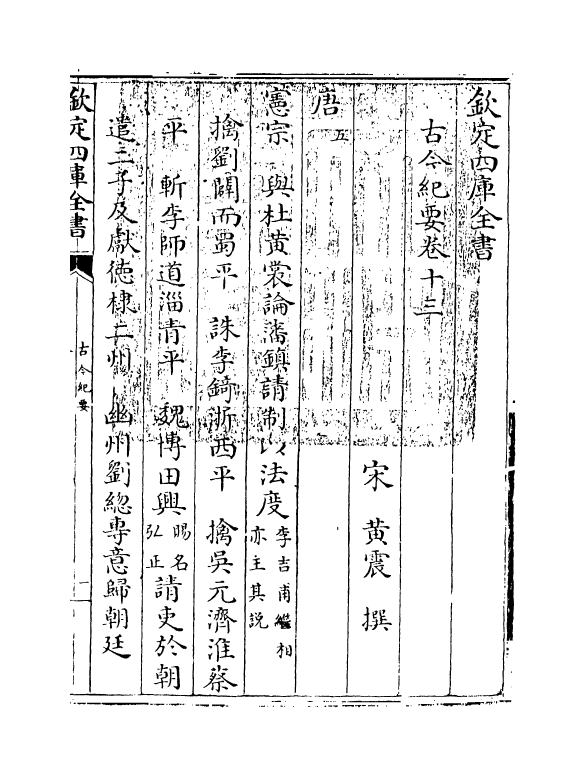 欽定四庫全書
古今紀要卷十三
宋 黃震 撰
唐五
憲宗 與杜黃裳論藩鎮請制以法度李吉甫繼相亦主其説
擒劉闢而蜀平 誅李錡浙西平 擒吳元濟淮蔡
平 斬李師道淄青平 魏博田興賜名弘正請吏於朝
遣三子及獻德棣二州 幽州劉總專意歸朝廷
欽定四庫全書
古今紀要
一